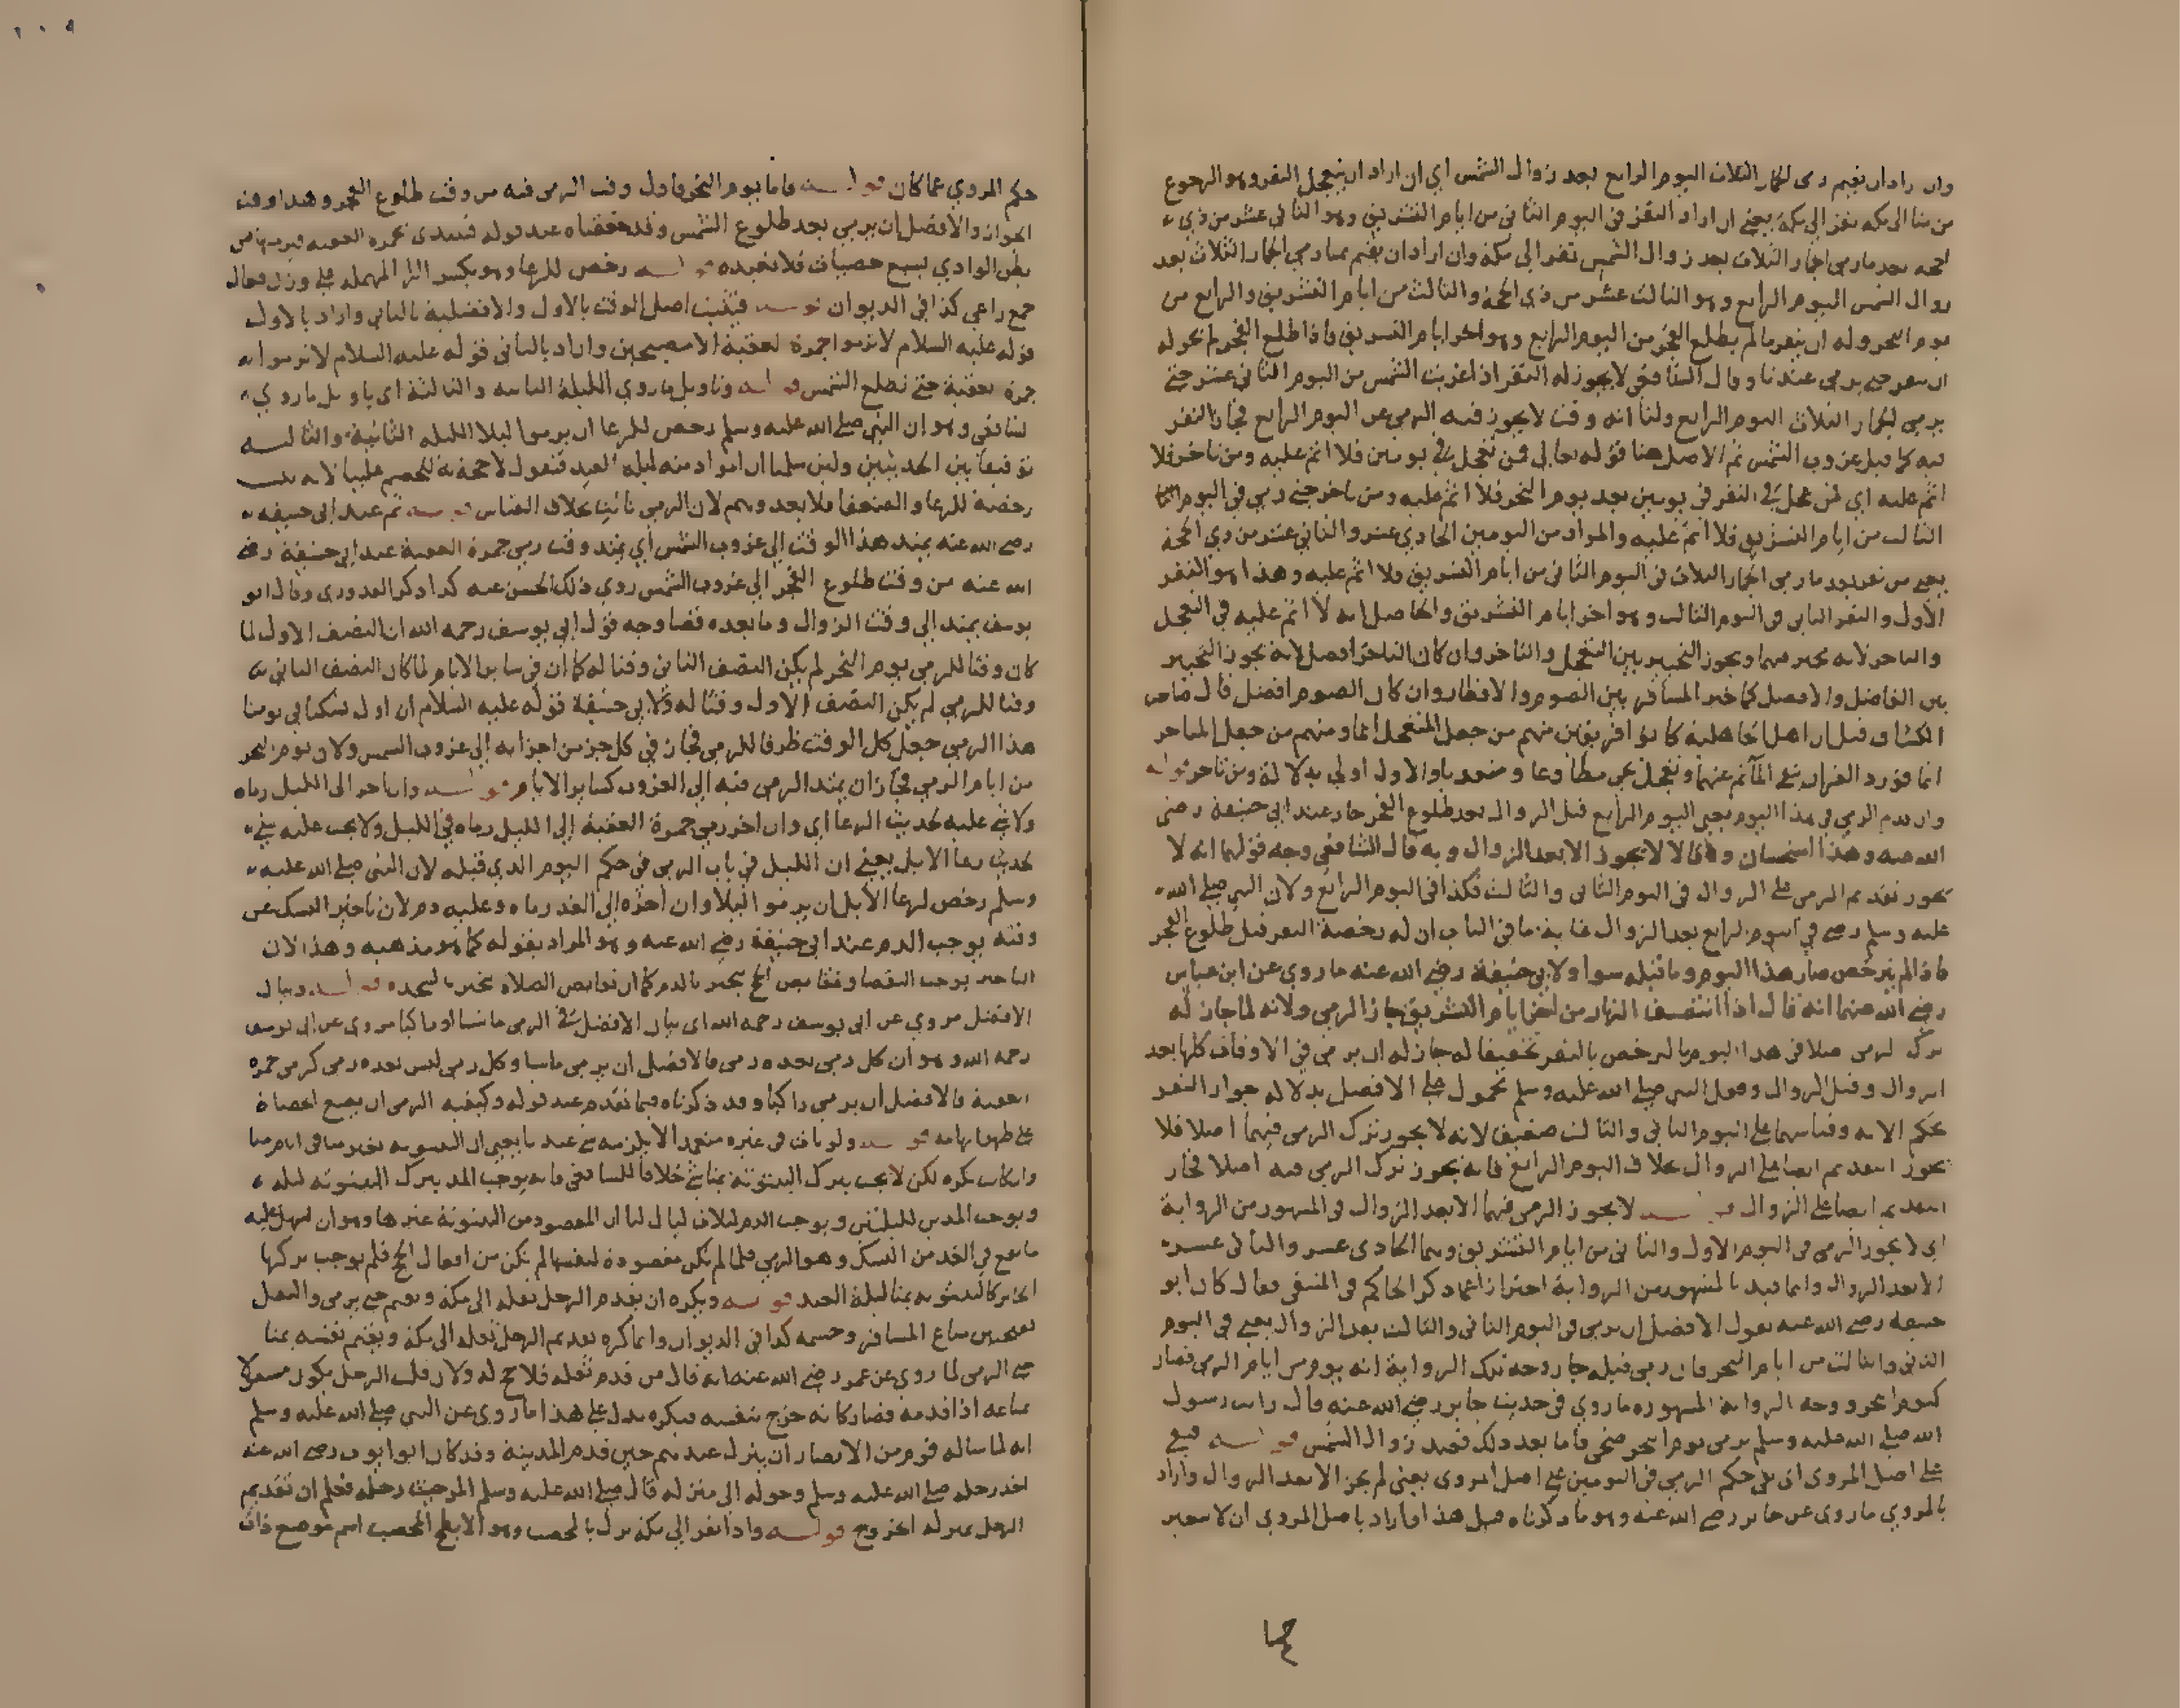 وان اراد ان يقيم رمى الجمار الثلاث اليوم الرابع بعد زوال الشمس اي ان اراد ان يتعجل النفر وهو الرجوع
من منا الى مكه نفر الى مكة يعني ان اراد النفر في اليوم الثاني من ايام التشريق وهو الثاني عشر من ذي
الحجه بعد ما رمى الجمار الثلاث بعد زوال الشمس نفر الى مكه وان اراد ان يقيم بمنا رمى الجمار الثلاث بعد
زوال الشمس اليوم الرابع وهو الثالث عشر من ذي الحجة والثالث من ايام التشريق والرابع من
يوم النحر وله ان ينفر ما لم يطلع الفجر من اليوم الرابع وهو اخر ايام التشريق فاذا طلع الفجر لم يجز له
ان ينفر حتى يرمي عندنا وقال الشافعي لا يجوز له النفر اذا غربت الشمس من اليوم الثاني عشر حتى
يرمي الجمار الثلاث اليوم الرابع ولنا انه وقت لا يجوز فيه الرمي عن اليوم الرابع فجاز النفر
فيه كما قبل غروب الشمس ثم الاصل هنا قوله تعالى فمن تعجل في يومين فلا اثم عليه ومن تاخر فلا
اثم عليه اي فمن عجل في النفر في يومين بعد يوم النحر فلا اثم عليه ومن تاخر حتى رمي في اليوم
الثالث من ايام التشريق فلا اثم عليه والمراد من اليومين الحادي عشر والثاني عشر من ذي الحجة
يعني من نفر بعد ما رمى الجمار الثلاث في اليوم الثاني من ايام التشريق فلا اثم عليه وهذا هو النفر
الاول والنفر الثاني في اليوم الثالث وهو اخر ايام التشريق والحاصل انه لا اثم عليه في التعجل
والتاخر لانه مخير فيهما ويجوز التخيير بين التعجل والتاخر وان كان التاخر افضل لانه يجوز التخيير
بين الفاضل والافضل كما خير المسافر بين الصوم والافطار وان كان الصوم افضل قال صاحب
الكشاف قيل ان اهل الجاهلية كانوا فريقين منهم من جعل المتعجل اثما ومنهم من جعل المتاخر
اثما فورد القران بنفي المآثم عنهما وتعجل يجي مطاوعا ومتعديا والاول اولى بدلالة ومن تاخر قوله
وان قدم الرمي في هذا اليوم يعني اليوم الرابع قبل الزوال بعد طلوع الفجر جاز عند ابي حنيفة رضي
الله عنه وهذا استحسان وقالا لا يجوز الا بعد الزوال وبه قال الشافعي وجه قولهما انه لا
يجوز تقديم الرمي على الزوال في اليوم الثاني والثالث فكذا في اليوم الرابع ولان النبي صلى الله
عليه وسلم رمى في اليوم الرابع بعد الزوال غاية ما في الباب ان له رخصة النفر قبل طلوع الفجر
فاذا لم يترخص صار هذا اليوم وما قبله سوا ولابي حنيفة رضي الله عنه ما روي عن ابن عباس
رضي الله عنهما انه قال اذا انتصف النهار من اخر ايام التشريق جاز الرمي ولانه لما جاز له
ترك الرمي اصلا في هذا اليوم بالترخص بالنفر تخفيفا له جاز له ان يرمي في الاوقات كلها بعد
الزوال وقبل الزوال وفعل النبي صلى الله عليه وسلم محمول على الافضل بدلالة جواز النفر
بحكم الاية وقياسهما على اليوم الثاني والثالث ضعيف لانه لا يجوز ترك الرمي فيهما اصلا فلا
يجوز التقديم ايضا على الزوال بخلاف اليوم الرابع فانه يجوز ترك الرمي فيه اصلا فجاز
التقديم ايضا على الزوال قوله لا يجوز الرمي فيهما الا بعد الزوال في المشهور من الرواية
اي لا يجوز الرمي في اليوم الاول والثاني من ايام التشريق وهما الحادي عشر والثاني عشر
الا بعد الزوال وانما قيد بالمشهور من الرواية احترازا عما ذكر الحاكم في المنتقى فقال كان ابو
حنيفة رضي الله عنه يقول الافضل ان يرمي في اليوم الثاني والثالث بعد الزوال يعني في اليوم
الثاني والثالث من ايام النحر فان رمى قبله جاز وجه تلك الرواية انه يوم من ايام الرمي فصار
كيوم النحر ووجه الرواية المشهورة ما روي في حديث جابر رضي الله عنه قال رايت رسول
الله صلى الله عليه وسلم يرمي يوم النحر ضحى فاما بعد ذلك فبعد زوال الشمس قوله فبقي
على اصل المروي اي بقي حكم الرمي في اليومين على اصل المروي يعني لم يجز الا بعد الزوال واراد
بالمروي ما روي عن جابر رضي الله عنه وهو ما ذكرناه قبل هذا واراد باصل المروي ان لا يتغير
حكم المروي عما كان قوله فاما يوم النحر فاول وقت الرمي فيه من وقت طلوع الفجر وهذا وقت
الجواز والافضل ان يرمي بعد طلوع الشمس وقد حققناه عند قوله فيبتدي بجمرة العقبه فيرميها من
بطن الوادي بسبع حصيات فلا نعيده قوله رخص للرعا وهو بكسر الرا المهمله على وزن فعال
جمع راعي كذا في الديوان قوله فيثبت اصل الوقت بالاول والافضلية بالثاني واراد بالاول
قوله عليه السلام لا ترموا جمرة العقبة الا مصبحين واراد بالثاني قوله عليه السلام لا ترموا
جمرة العقبة حتى تطلع الشمس قوله وتاويل ما روي الليلة الثانيه والثالثة اي تاويل ما روي
الشافعي وهو ان النبي صلى الله عليه وسلم رخص للرعا ان يرموا ليلا الليله الثانية والثالثه
توفيقا بين الحديثين ولئن سلمنا ان المراد منه ليله العيد فنقول لا حجة به للخصم علينا لانه ثبت
رخصة للرعا والضعفا فلا يعدوهم لان الرمي ثابت بخلاف القياس قوله ثم عند ابي حنيفه
رضي الله عنه يمتد هذا الوقت الى غروب الشمس اي يمتد وقت رمي جمرة العقبة عند ابي حنيفة رضي
الله عنه من وقت طلوع الفجر الى غروب الشمس روى ذلك الحسن عنه كذا ذكر القدوري وقال ابو
يوسف يمتد الى وقت الزوال وما بعده قضا وجه قول ابي يوسف رحمه الله ان النصف الاول لما
كان وقتا للرمي يوم النحر لم يكن النصف الثاني وقتا له كما ان في ساير الايام لما كان النصف الثاني
وقتا للرمي لم يكن النصف الاول وقتا له ولابي حنيفة قوله عليه السلام ان اول نسكنا في يومنا
هذا الرمي جعل كل الوقت ظرفا للرمي فجاز في كل جز من اجزائه الى غروب الشمس ولان يوم النحر
من ايام الرمي فجاز ان يمتد الرمي فيه الى الغروب كساير الايام قوله وان اخر الى الليل رماه
ولا شي عليه لحديث الرعا اي وان اخر رمي جمرة العقبة الى الليل رماه في الليل ولا يجب عليه شي
لحديث رعا الابل يعني ان الليل في باب الرمي في حكم اليوم الذي قبله لان النبي صلى الله عليه
وسلم رخص لرعا الابل ان يرموا ليلا وان اخره الى الغد رماه وعليه دم لان تاخير النسك عن
وقته يوجب الدم عند ابي حنيفة رضي الله عنه وهو المراد بقوله كما هو مذهبه وهذا لان
التاخير يوجب النقصان ونقايص الحج تجبر بالدم كما ان نقايص الصلاة تجبر بالسجده قوله وبيان
الافضل مروي عن ابي يوسف رحمه الله اي بيان الافضل في الرمي ماشيا او راكبا مروي عن ابي يوسف
رحمه الله وهو ان كل رمي بعده رمي فالافضل ان يرمي ماشيا وكل رمي ليس بعده رمي كرمي جمره
العقبة فالافضل ان يرمي راكبا وقد ذكرناه فيما تقدم عند قوله وكيفية الرمي ان يضع الحصاة
على ظهر ابهامه قوله ولو بات في غيره متعمدا لا يلزمه شي عندنا يعني ان البيتوته بغير منا في ايام منا
وان كان يكره لكن لا يجب بترك البيتوتة بمنا شي خلافا للشافعي فانه يوجب المد بترك البيتوته ليله
ويوجب المدين لليلتين ويوجب الدم لثلاث ليال لنا ان المقصود من البيتوتة غيرها وهو ان يسهل عليه
ما يقع في الغد من النسك وهو الرمي فلما لم تكن مقصودة لنفسها لم تكن من افعال الحج فلم يوجب تركها
الجابر كالبيتوته بمنا ليلة العيد قوله ويكره ان يقدم الرجل ثقله الى مكة ويقيم حتى يرمي والثقل
بفتحتين متاع المسافر وحشمه كذا في الديوان وانما كره تقديم الرجل ثقله الى مكه ويقيم بنفسه بمنا
حتى الرمي لما روي عن عمر رضي الله عنه انه قال من قدم ثقله فلا حج له ولان قلب الرجل يكون مشغولا
بمتاعه اذا قدمه فصار كانه خرج بنفسه فيكره يدل على هذا ما روي عن النبي صلى الله عليه وسلم
انه لما ساله قوم من الانصار ان ينزل عندهم حين قدم المدينة وقد كان ابو ايوب رضي الله عنه
اخذ رحله صلى الله عليه وسلم وحوله الى منزله قال صلى الله عليه وسلم المرء حيث رحله فعلم ان تقديم
الرحل بمنزله الخروج قوله واذا نفر الى مكة نزل بالمحصب وهو الابطح المحصب اسم موضع ذات